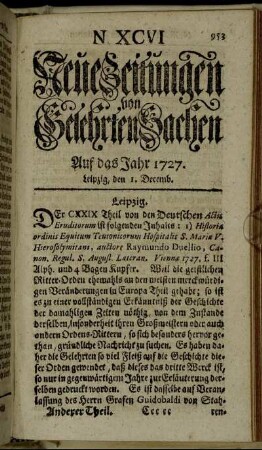 N XCVI
953
Neue Zeitungen
von
Gelehrten Sachen
Auf das Jahr 1727.
Leipzig, den 1. Decemb.
Leipzig.
DEr CXXIX Theil von den Deutschen Actis
Eruditorum ist folgenden Inhalts: 1) Historia
ordinis Equitum Teutonicorum Hospitalis S. Mariæ V.
Hierosolymitani, auctore Raymundo Duellio, Ca-
non. Regul. S. August. Lauream. Viennæ 1727. f. III
Alph. und 4 Bogen Kupfer. Weil die geistlichen
Ritter-Orden ehemahls an den meisten merckwürdi-
gen Veränderungen in Europa Theil gehabt; so ist
es zu einer vollständigen Erkäntniß der Geschichte
der damahligen Zeiten nöthig, von dem Zustande
derselben, insonderheit ihren Großmeistern oder auch
andern Ordens-Rittern, so sich besonders hervor ge-
than, gründliche Nachricht zu suchen. Es haben da-
her die Gelehrten so viel Fleiß auf die Geschichte die-
ser Orden gewendet, daß dieses das dritte Werck ist,
so nur in gegenwärtigem Jahre zur Erläuterung der-
selben gedruckt worden. Es ist dasselbe auf Veran-
lassung des Herrn Grafen Guidobaldi von Stah-
Anderer Theil. Ccc cc ren-